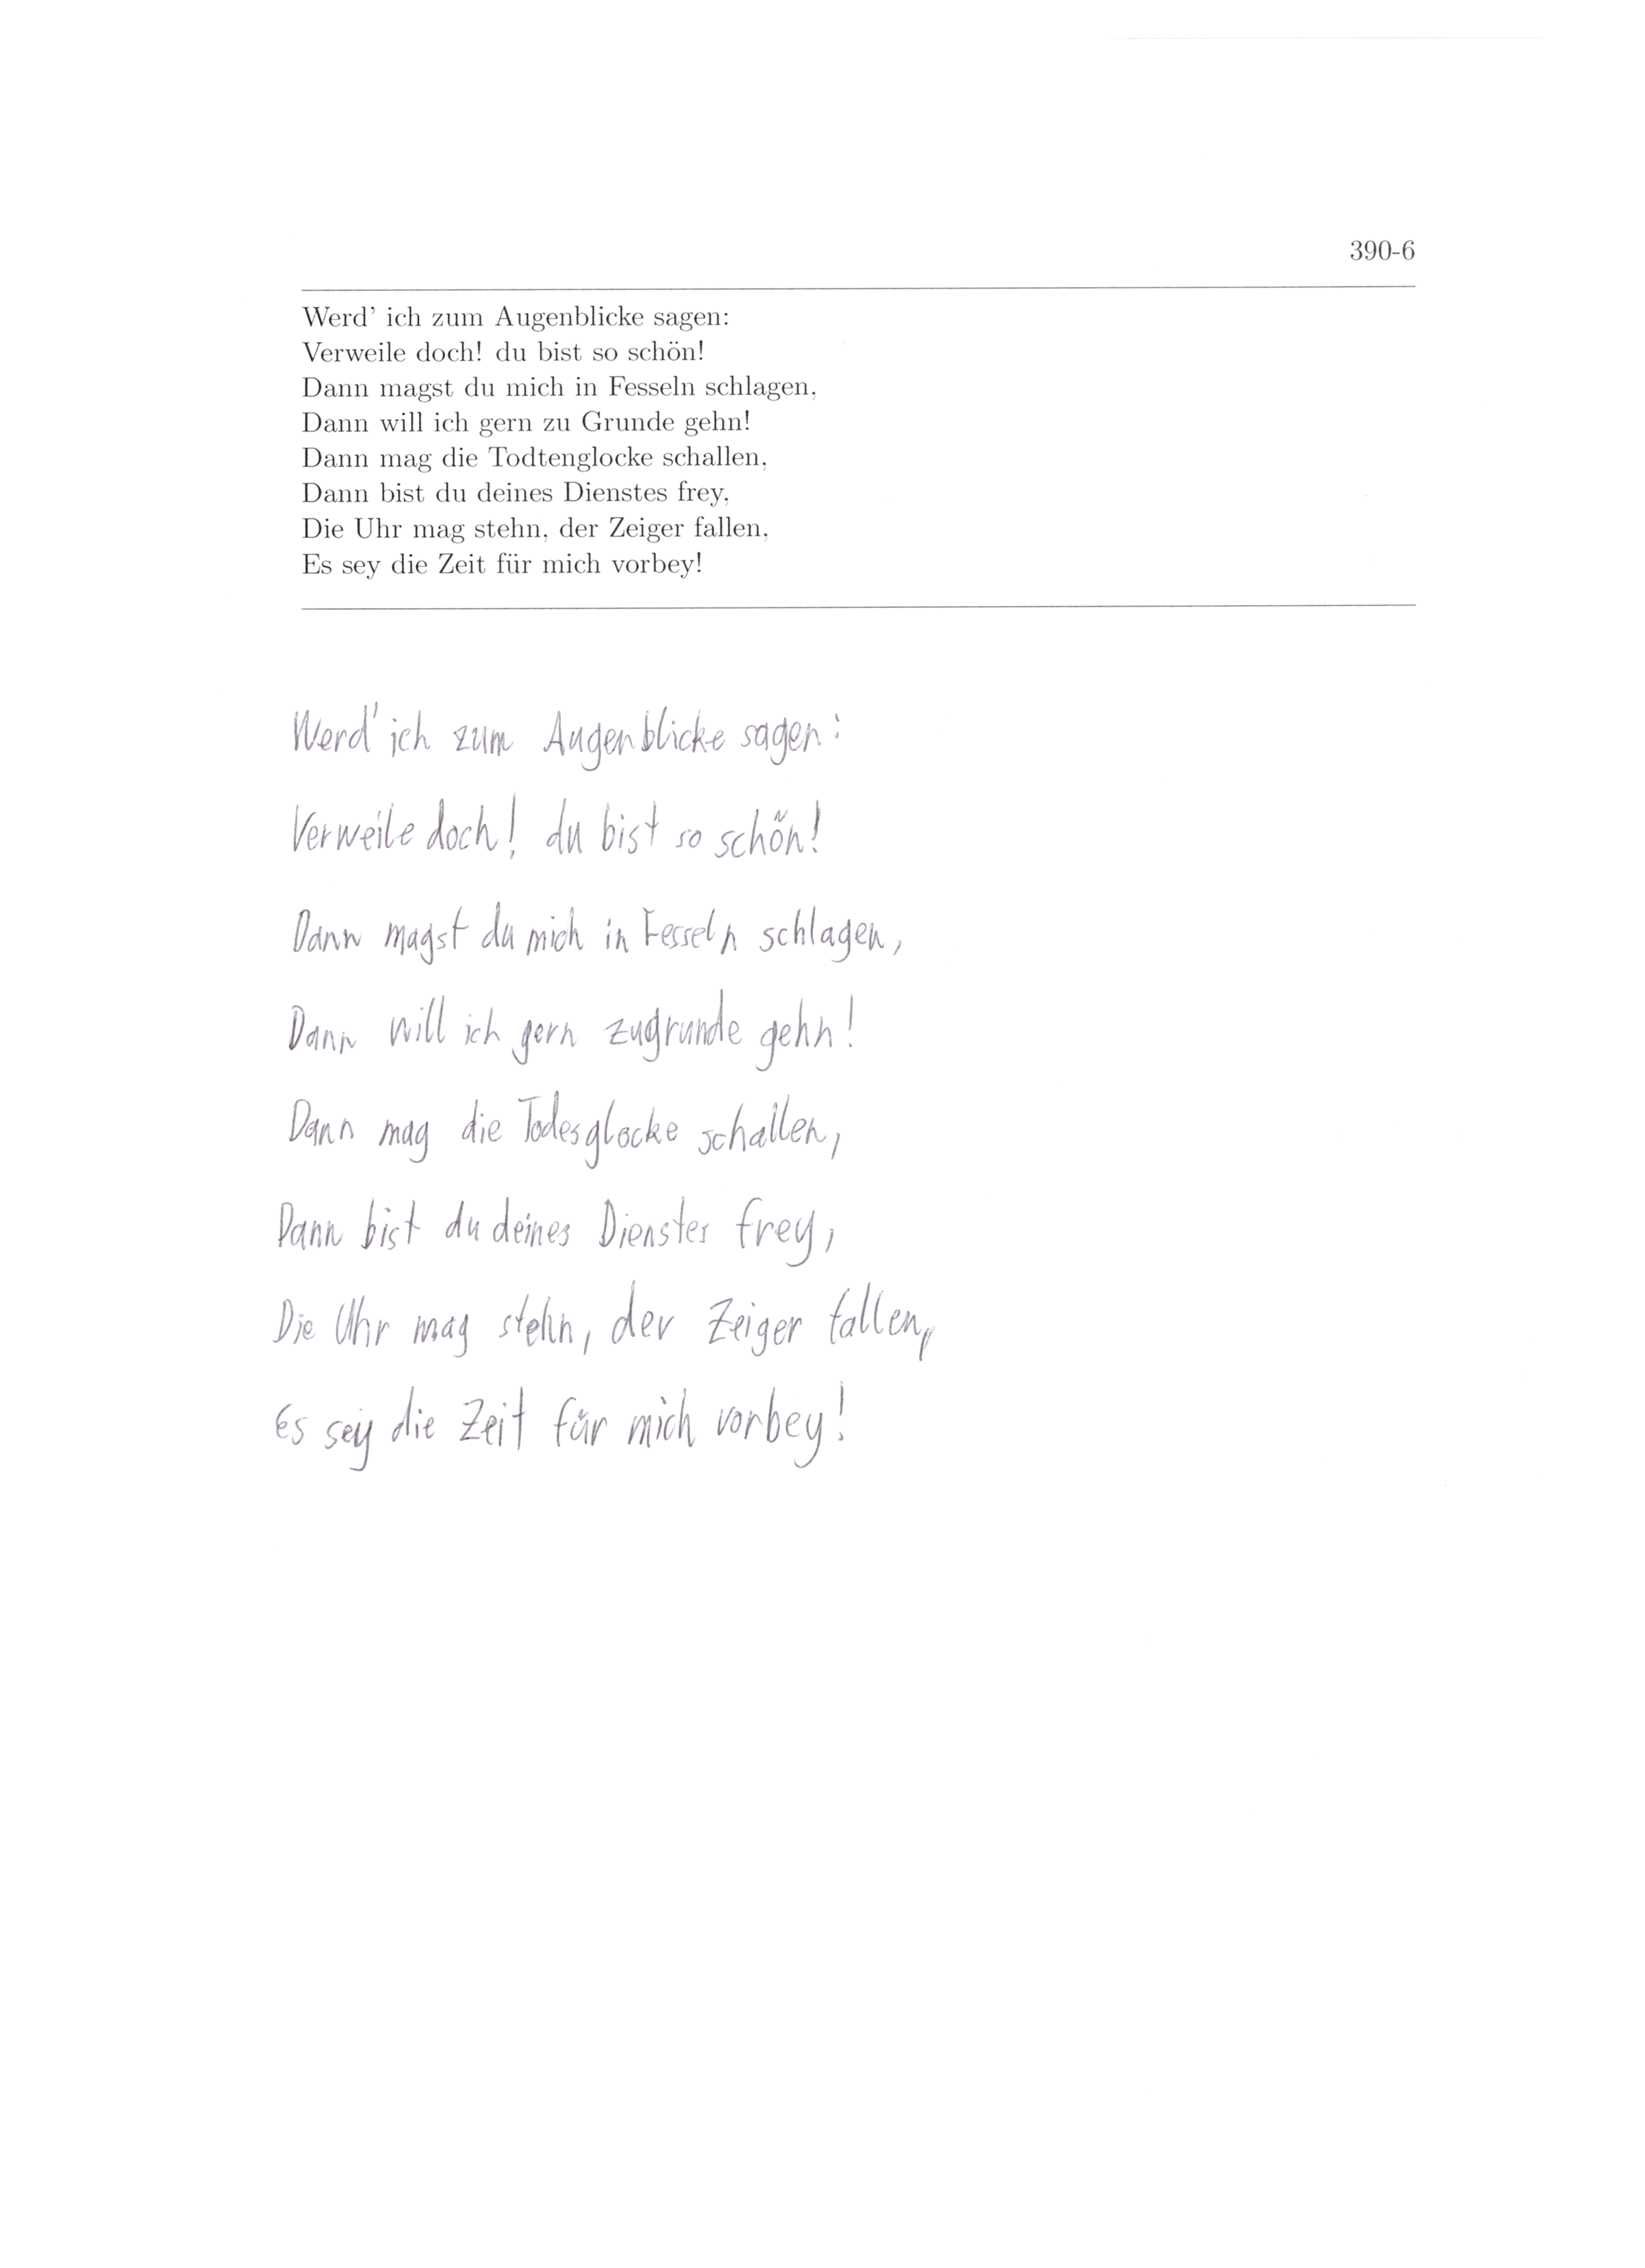 390-6
Werd' ich zum Augenblicke sagen:
Verweile doch! du bist so schön!
Dann magst du mich in Fesseln schlagen,
Dann will ich gern zu Grunde gehn!
Dann mag die Todtenglocke schallen,
Dann bist du deines Dienstes frey,
Die Uhr mag stehn, der Zeiger fallen,
Es sey die Zeit für mich vorbey!
Werd' ich zum Augenblicke sagen:
Verweile doch! du bist so schön!
Dann magst du mich in Fesseln schlagen,
Dann will ich gern zugrunde gehn!
Dann mag die Todesglocke schallen,
Dann bist du deines Dienstes frey,
Die Uhr mag stehn, der Zeiger fallen,
Es sey die Zeit für mich vorbey!